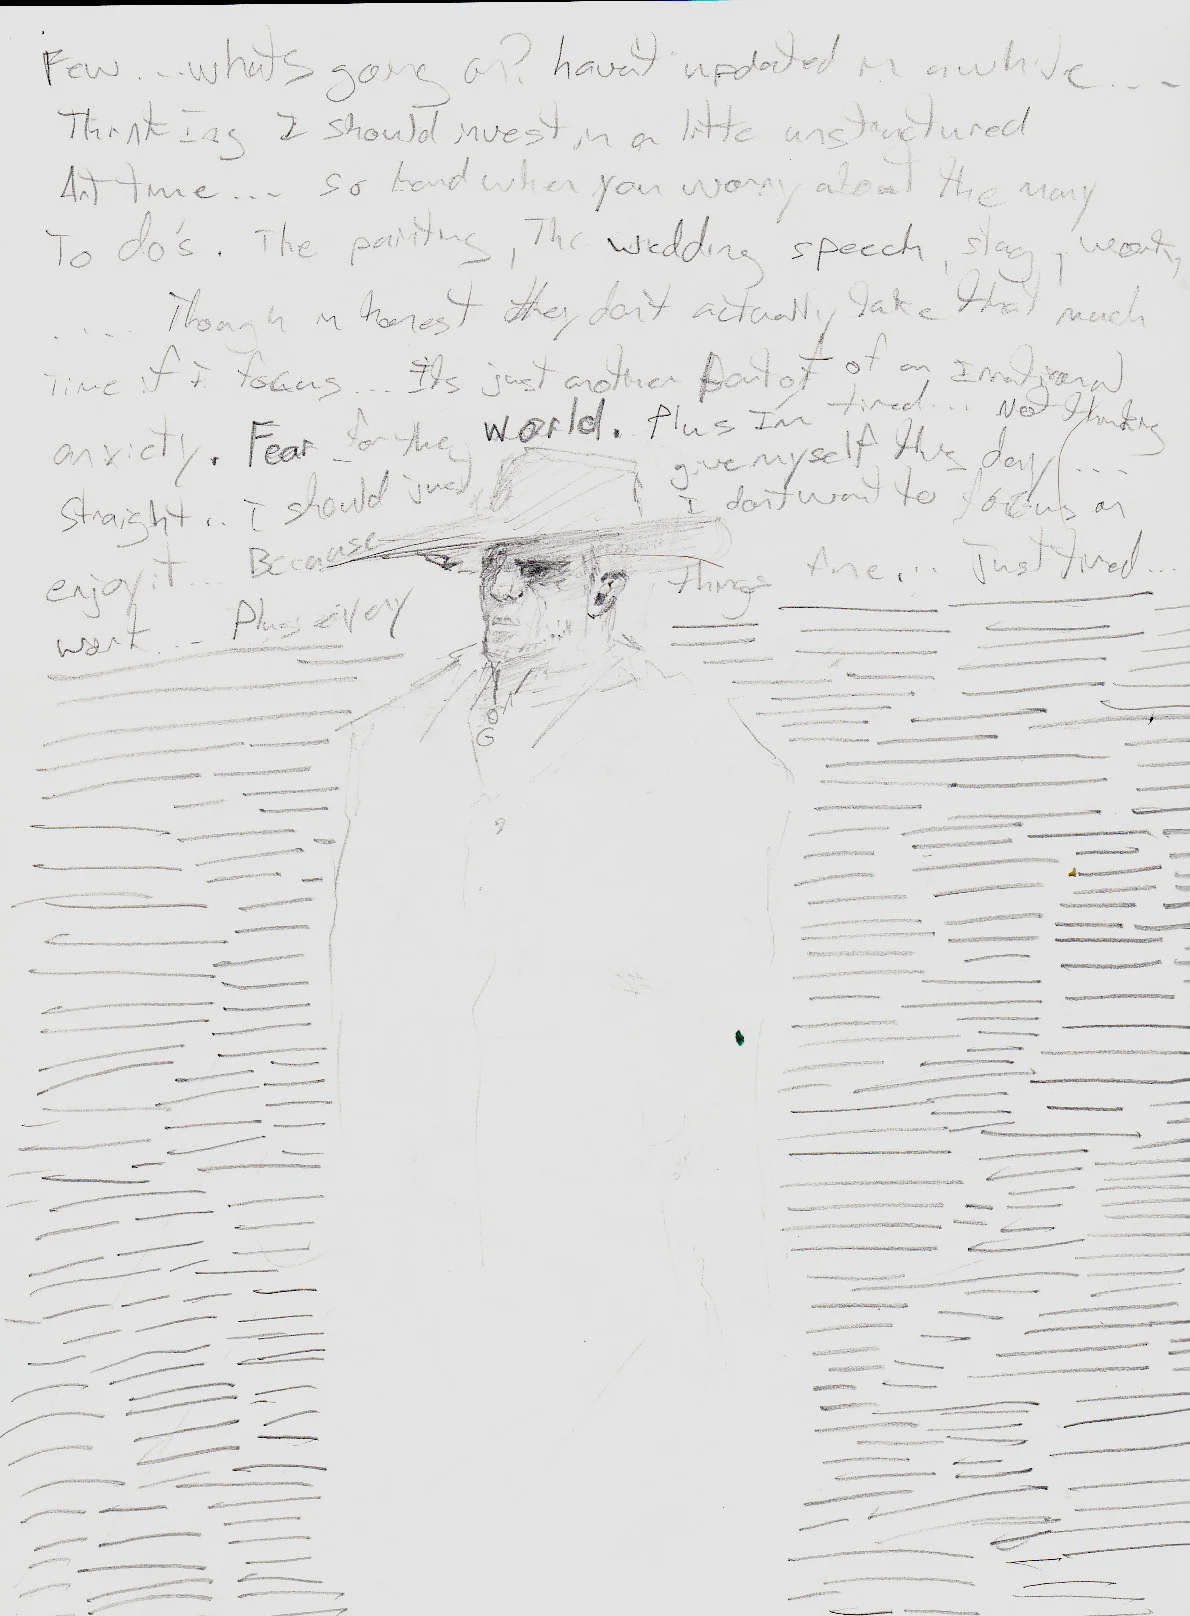 Few...whats going on? havent updated in awhile...
Thinking I should invest in a little unstructured
Art time... so hard when you worry about the many
To do's. The painting, The wedding speech, stag,
... Though in honest they don't actually take that much
Time if I focus... Its just another part of an Irrational
anxiety. Fear for the world. Plus Im tired... Not thinking
straight.. I should just give myself this day...
enjoy it... Because I dont want to focus on
work... Plus every things fine... Just tired...